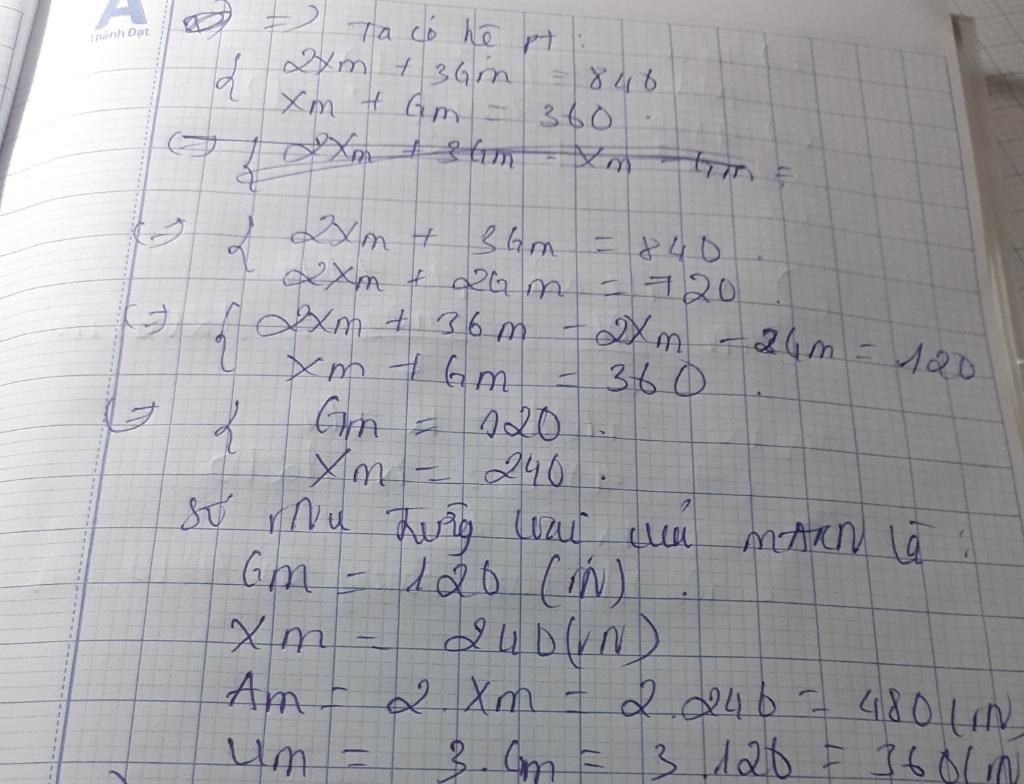 Thành Đạt
=> Ta có hệ pt:
{ 2Xm + 3Gm = 840
Xm + Gm = 360.
<=> { 2Xm + 3Gm - Xm - Gm =
<=> { 2Xm + 3Gm = 840.
2Xm + 2Gm = 720.
<=> { 2Xm + 3Gm - 2Xm - 2Gm = 120
Xm + Gm = 360.
<=> { Gm = 120.
Xm = 240.
số rNu từng loại của mARN là:
Gm = 120 (rN).
Xm = 240 (rN)
Am = 2. Xm = 2.240 = 480 (rN)
Um = 3. Gm = 3.120 = 360 (rN)